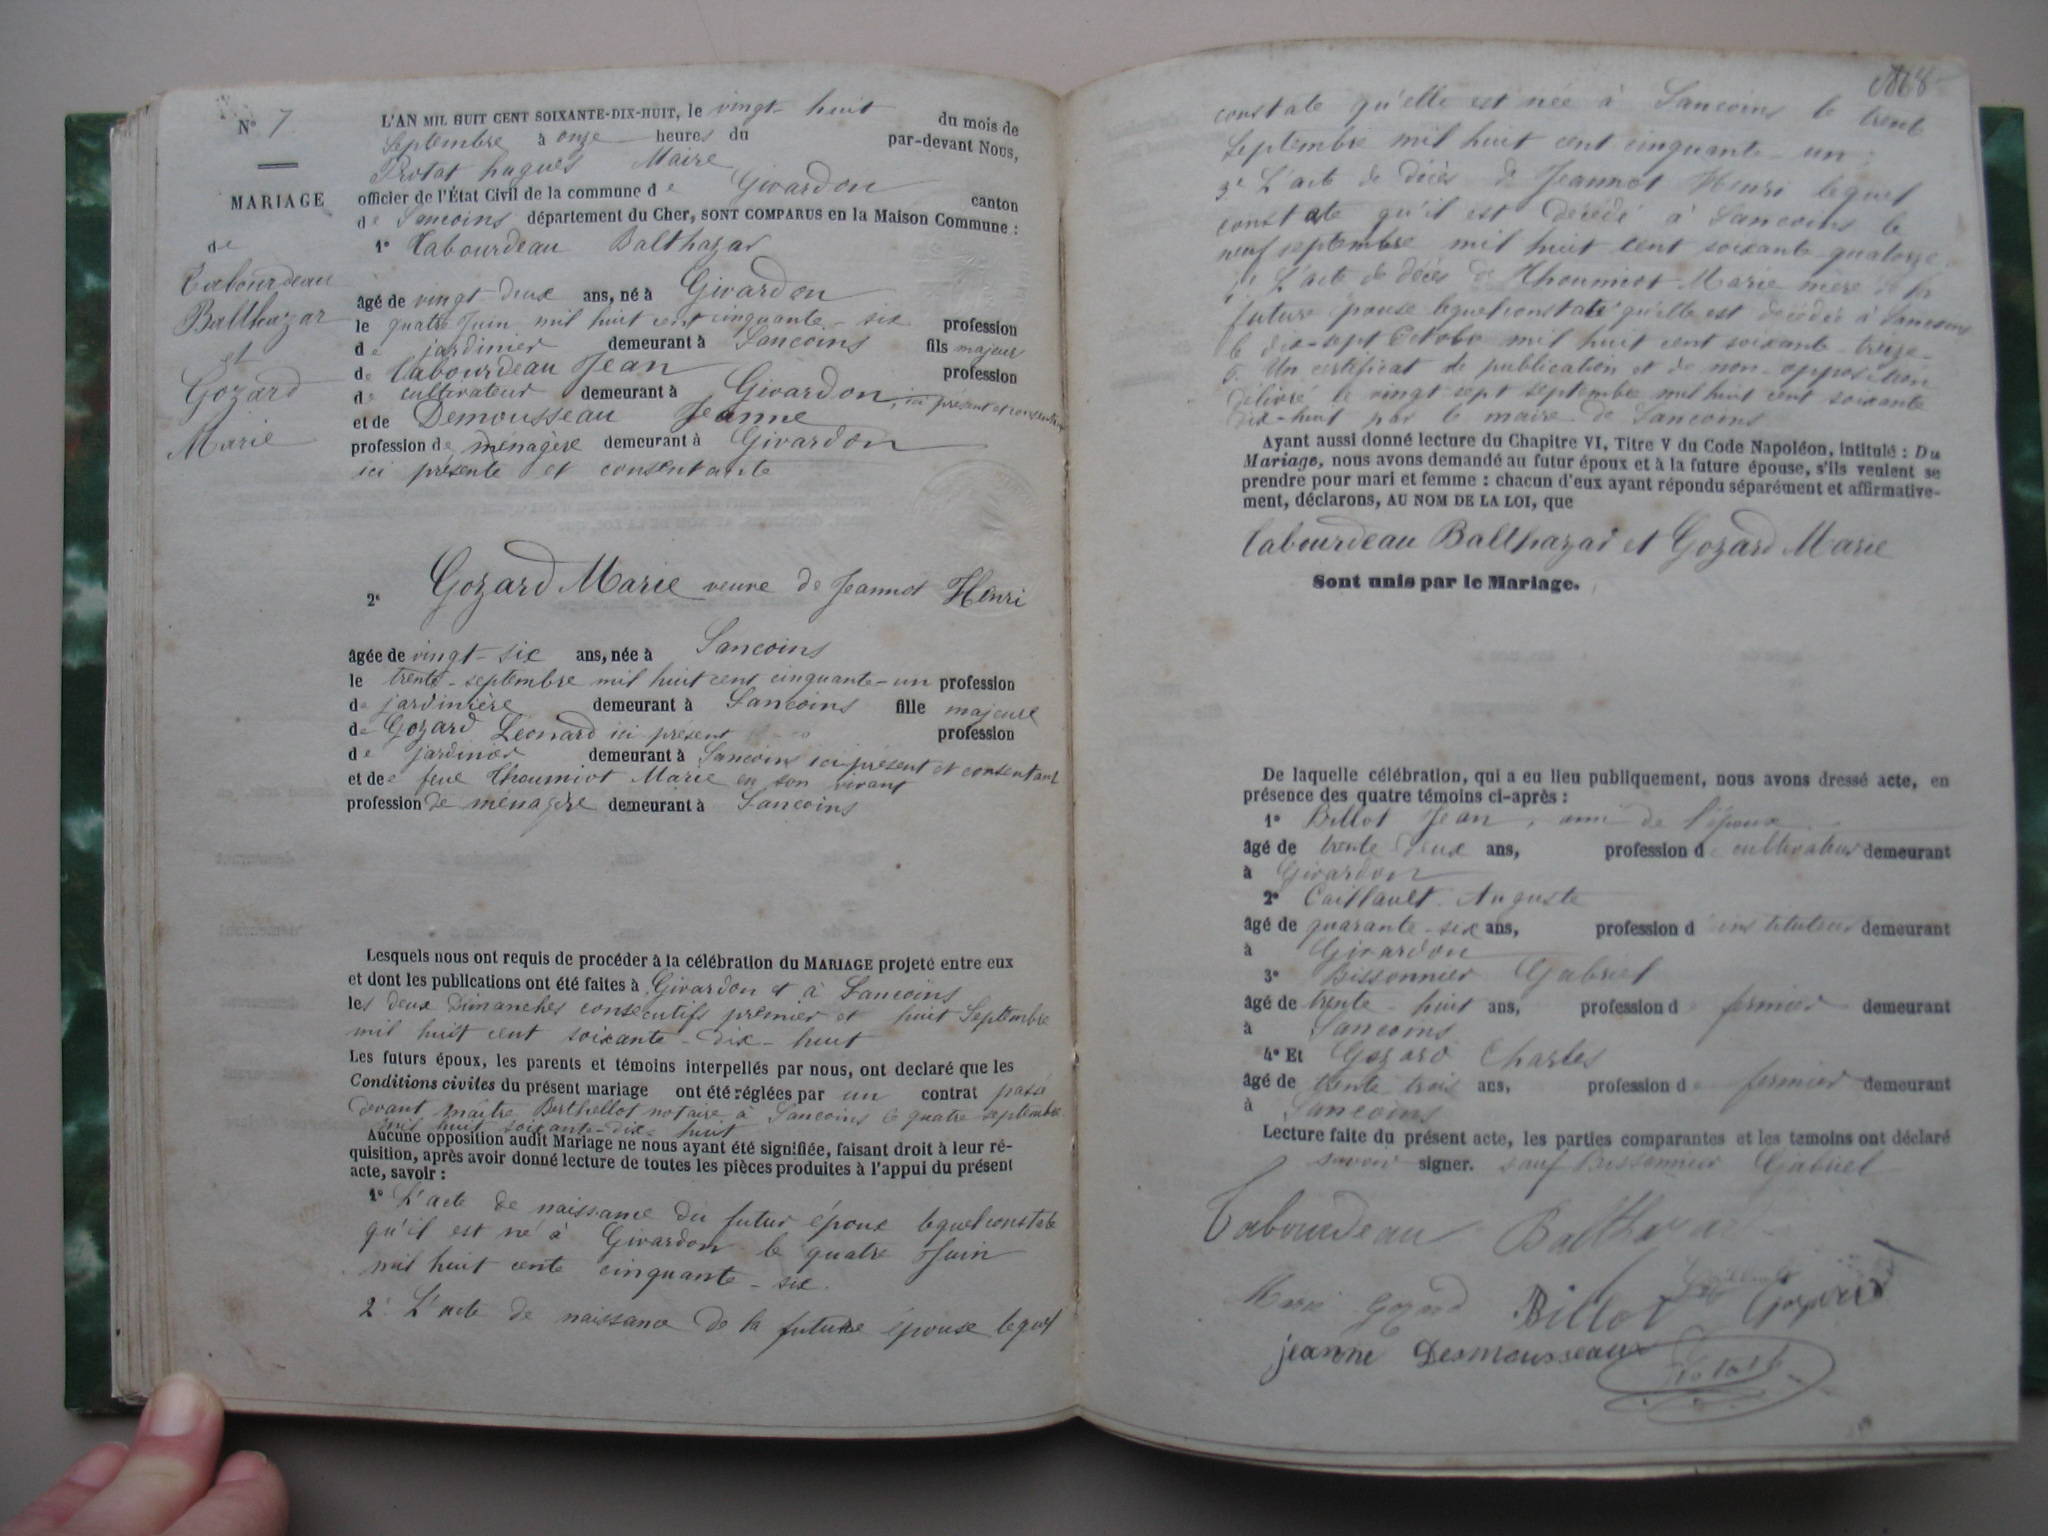 N° 7
MARIAGE
de
Tabourdeau
Balthazar
et
Gozard
Marie
L'AN MIL HUIT CENT SOIXANTE-DIX-HUIT, le vingt-huit du mois de
Septembre à onze heures du par-devant Nous,
Protat hugues Maire
officier de l'État Civil de la commune de Givardon canton
de Sancoins département du Cher, SONT COMPARUS en la Maison Commune :
1° Tabourdeau Balthazar
âgé de vingt-deux ans, né à Givardon
le quatre Juin mil huit cent cinquante-six profession
de jardinier demeurant à Sancoins fils majeur
de Tabourdeau Jean profession
de cultivateur demeurant à Givardon, ici présent et consentant
et de Demousseau Jeanne
profession de ménagère demeurant à Givardon
ici présente et consentante
2° Gozard Marie veuve de Jeannot Henri
âgée de vingt-six ans, née à Sancoins
le trente-septembre mil huit cent cinquante-un profession
de jardinière demeurant à Sancoins fille majeure
de Gozard Léonard ici présent profession
de jardinier demeurant à Sancoins ici présent et consentant
et de feue Thoumiot Marie en son vivant
profession de ménagère demeurant à Sancoins
Lesquels nous ont requis de procéder à la célébration du MARIAGE projeté entre eux
et dont les publications ont été faites à Givardon et à Sancoins
les deux Dimanches consecutifs premier et huit Septembre
mil huit cent soixante-dix-huit
Les futurs époux, les parents et témoins interpellés par nous, ont déclaré que les
Conditions civiles du présent mariage ont été réglées par un contrat passé
devant maître Berthellot notaire à Sancoins le quatre septembre
mil huit soixante-dix-huit
Aucune opposition audit Mariage ne nous ayant été signifiée, faisant droit à leur ré-
quisition, après avoir donné lecture de toutes les pièces produites à l'appui du présent
acte, savoir :
1° L'acte de naissance du futur époux lequel constate
qu'il est né à Givardon le quatre Juin
mil huit cente cinquante-six.
2° L'acte de naissance de la future épouse lequel
constate qu'elle est née à Sancoins le trente
Septembre mil huit cent cinquante-un
3° L'acte de décès de Jeannot Henri lequel
constate qu'il est décédé à Sancoins le
neuf septembre mil huit cent soixante quatorze.
L'acte de décès de Thoumiot Marie mère de la
future épouse lequel constate qu'elle est décédée à Sancoins
le dix-sept Octobre mil huit cent soixante-treize.
5. Un certificat de publication et de non-opposition
délivré le vingt sept septembre mil huit cent soixante
dix-huit par le maire de Sancoins
Ayant aussi donné lecture du Chapitre VI, Titre V du Code Napoléon, intitulé : Du
Mariage, nous avons demandé au futur époux et à la future épouse, s'ils veulent se
prendre pour mari et femme : chacun d'eux ayant répondu séparément et affirmative-
ment, déclarons, AU NOM DE LA LOI, que
Tabourdeau Balthazar et Gozard Marie
Sont unis par le Mariage.
De laquelle célébration, qui a eu lieu publiquement, nous avons dressé acte, en
présence des quatre témoins ci-après :
1° Billot Jean, ami de l'époux
âgé de trente deux ans, profession de cultivateur demeurant
à Givardon
2° Caillault Auguste
âgé de quarante-six ans, profession d'instituteur demeurant
à Givardon
3° Bissonnier Gabriel
âgé de trente-huit ans, profession de fermier demeurant
à Sancoins
4° Et Gozard Charles
âgé de trente-trois ans, profession de fermier demeurant
à Sancoins
Lecture faite du présent acte, les parties comparantes et les témoins ont déclaré
savoir signer. sauf Bissonnier Gabriel
Tabourdeau Balthazar
Marie Gozard Billot Caillault Gozard
jeanne Desmousseaux Protat